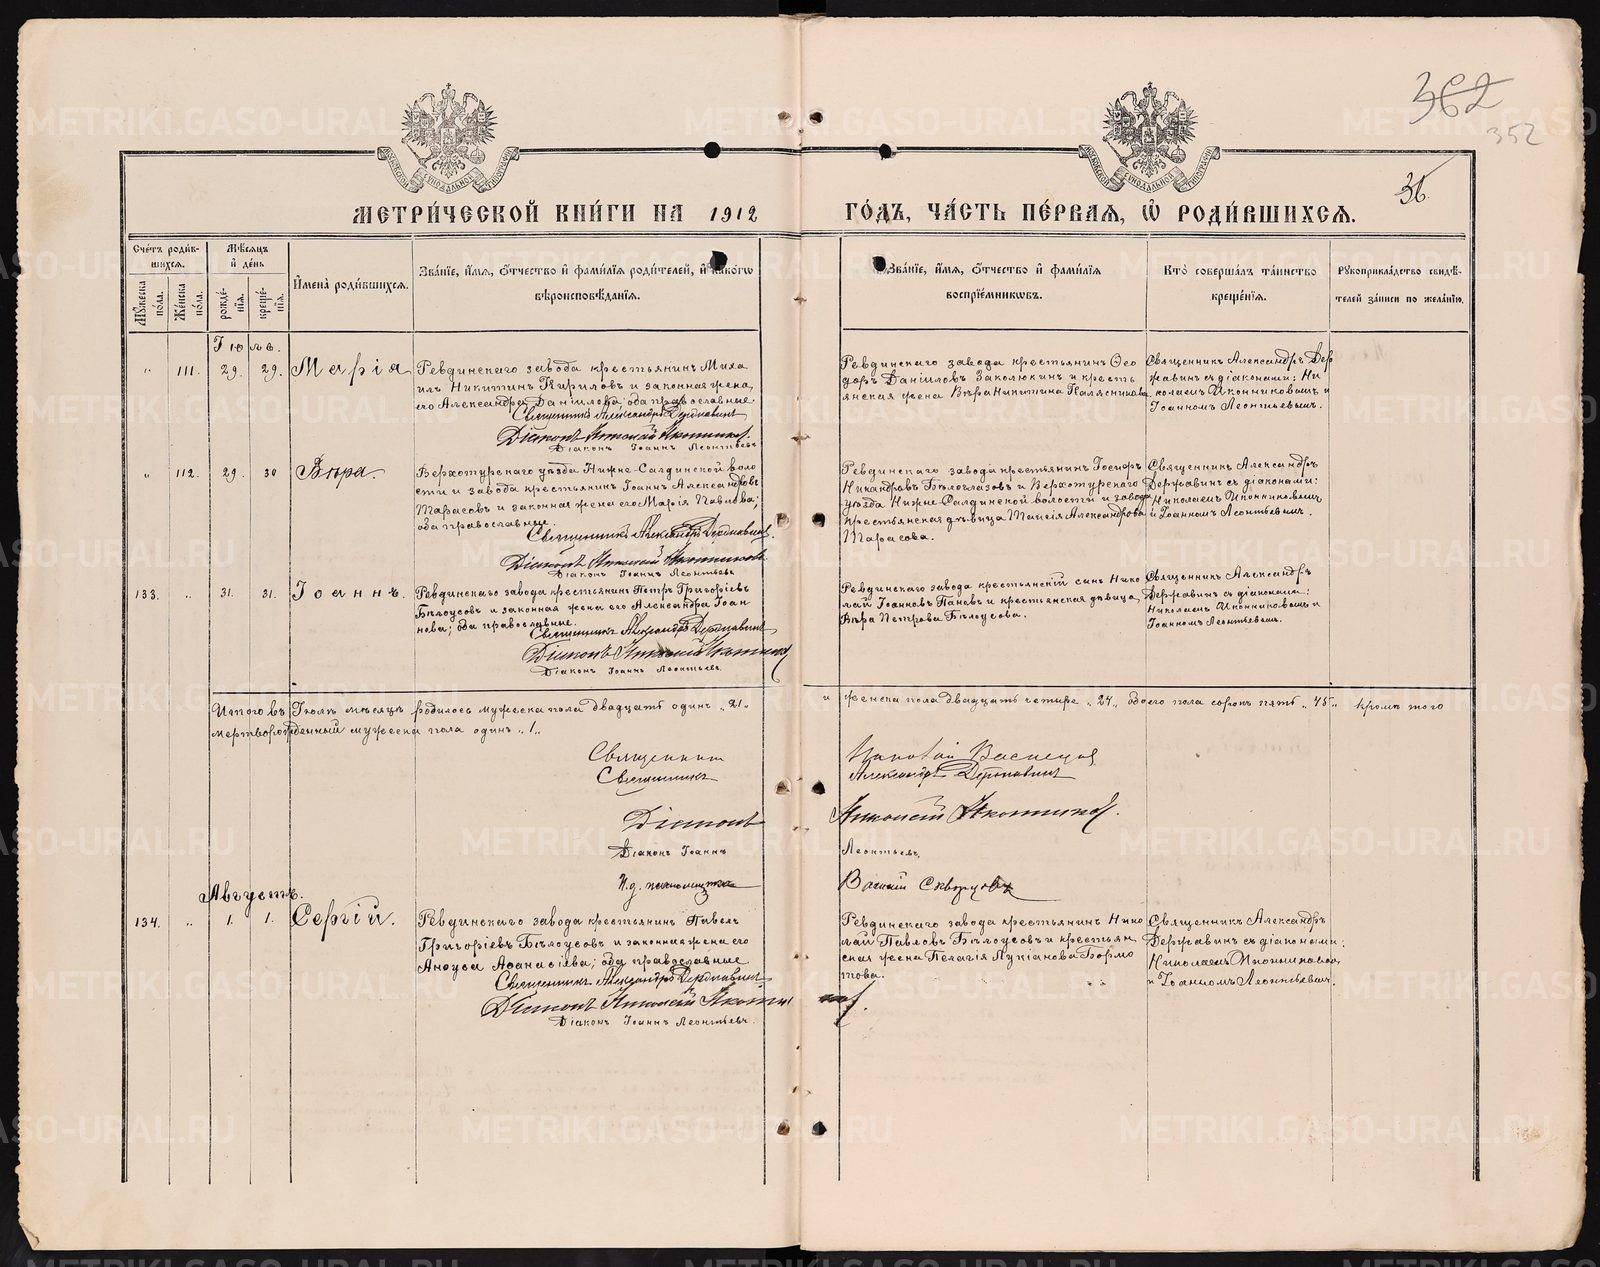 362
352
36.
МЕТРИ́ЧЕСКОЙ КНИ́ГИ НА 1912 ГО́ДЪ, ЧА́СТЬ ПЕ́РВАѦ, Ѡ҆ РОДИ́ВШИХСѦ.
Сче́тъ роди́в-
шихсѧ.
Мꙋ́жеска по́ла.
Же́нска по́ла.
Мѣ́сѧцъ и҆ де́нь
рожде́нїѧ.
креще́нїѧ.
И҆мена̀ роди́вшихсѧ.
Зва́нїе, и҆́мѧ, ѻ҆́тчество и҆ фами́лїѧ роди́телей, и҆ како́гѡ
вѣроисповѣ́данїѧ.
Зва́нїе, и҆́мѧ, ѻ҆́тчество и҆ фами́лїѧ
воспрїе́мникѡвъ.
Кто̀ соверша́лъ та́инство
креще́нїѧ.
Рꙋкоприкла́дство свидѣ́-
телей за́писи по жела́нїю.
Іюль.
" 111. 29. 29. Марія
Ревдинскаго завода крестьянинъ Миха
илъ Никитинъ Кириловъ и законная жена
его Александра Даніилова; оба православные
Священникъ Александръ Державинъ
Діаконъ Николай Иконниковъ.
Діаконъ Іоаннъ Леонтьевъ
Ревдинскаго завода крестьянинъ Ѳео
доръ Даніиловъ Заколюкинъ и кресть
янская жена Вѣра Никитина
Священникъ Александръ Дер
жавинъ съ діаконами: Ни
колаемъ Иконниковымъ и
Іоанномъ Леонтьевымъ.
" 112. 29 30 Вѣра.
Верхотурскаго уѣзда Нижне-Салдинской воло
сти и завода крестьянинъ Іоаннъ Александровъ
Тарасовъ и законная жена его Марія Павлова;
оба православные.
Священникъ Александръ Державинъ.
Діаконъ Николай Иконниковъ
Діаконъ Іоаннъ Леонтьевъ
Ревдинскаго завода крестьянинъ
Никандровъ Бѣлоглазовъ и Верхотурскаго
уѣзда Нижне Салдинской волости и завода
крестьянская дѣвица Таисія Александрова
Тарасова.
Священникъ Александръ
Державинъ съ діаконами:
Николаемъ Иконниковымъ
и Іоанномъ Леонтьевымъ.
133. " 31. 31. Іоаннъ.
Ревдинскаго завода крестьянинъ Петръ Григоріевъ
Бѣлоусовъ и законная жена его Александра Іоан
нова; оба православные.
Священникъ Александръ Державинъ
Діаконъ Николай Иконников
Діаконъ Іоаннъ Леонтьевъ.
Ревдинскаго завода крестьянскій сынъ Нико
лай Іоанновъ Пановъ и крестьянская дѣвица
Вѣра Петрова Бѣлоусова.
Священникъ Александръ
Державинъ съ діаконами:
Николаемъ Иконниковымъ и
Іоанномъ Леонтьевымъ.
Итого въ Іюлѣ мѣсяцѣ родилось мужеска пола двадцать одинъ „21„ и женска пола двадцать четыре „24„ обоего пола сорокъ пять „45„ кромѣ того
мертворожденный мужеска пола одинъ „1„
Священник Николай Васнецов
Священникъ Александръ Державинъ
Діаконъ Николай Иконников.
Діаконъ Іоаннъ Леонтьевъ.
И. д. псаломщика Василій Скворцовъ
Августъ.
134. " 1. 1. Сергій.
Ревдинскаго завода крестьянинъ Павелъ
Григоріевъ Бѣлоусовъ и законная жена его
Анѳуса Аѳанасіева; оба православные
Священникъ Александръ Державинъ
Діаконъ Николай Иконников.
Діаконъ Іоаннъ Леонтьевъ.
Ревдинскаго завода крестьянинъ Нико
лай Павловъ Бѣлоусовъ и крестьян
ская жена Пелагія Лукіанова Бормо
това.
Священникъ Александръ
Державинъ съ діаконами:
Николаемъ Иконниковым
и Іоанномъ Леонтьевым.
METRIKI.GASO-URAL.RU